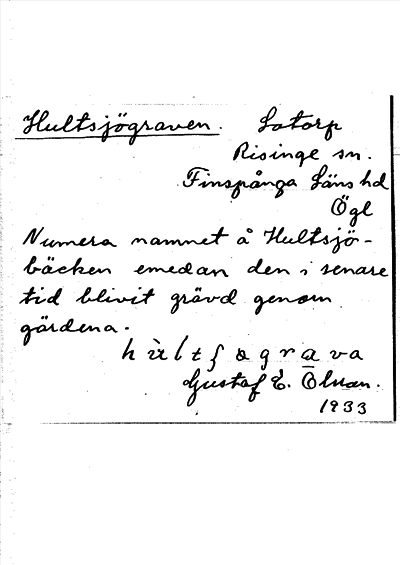 Hultsjögraven. Latorp
Risinge sn.
Finspånga Läns hd
Ögl
Numera namnet å Hultsjö-
bäcken emedan den i senare
tid blivit grävd genom
gärdena.
Gustaf E. Olsson.
1933